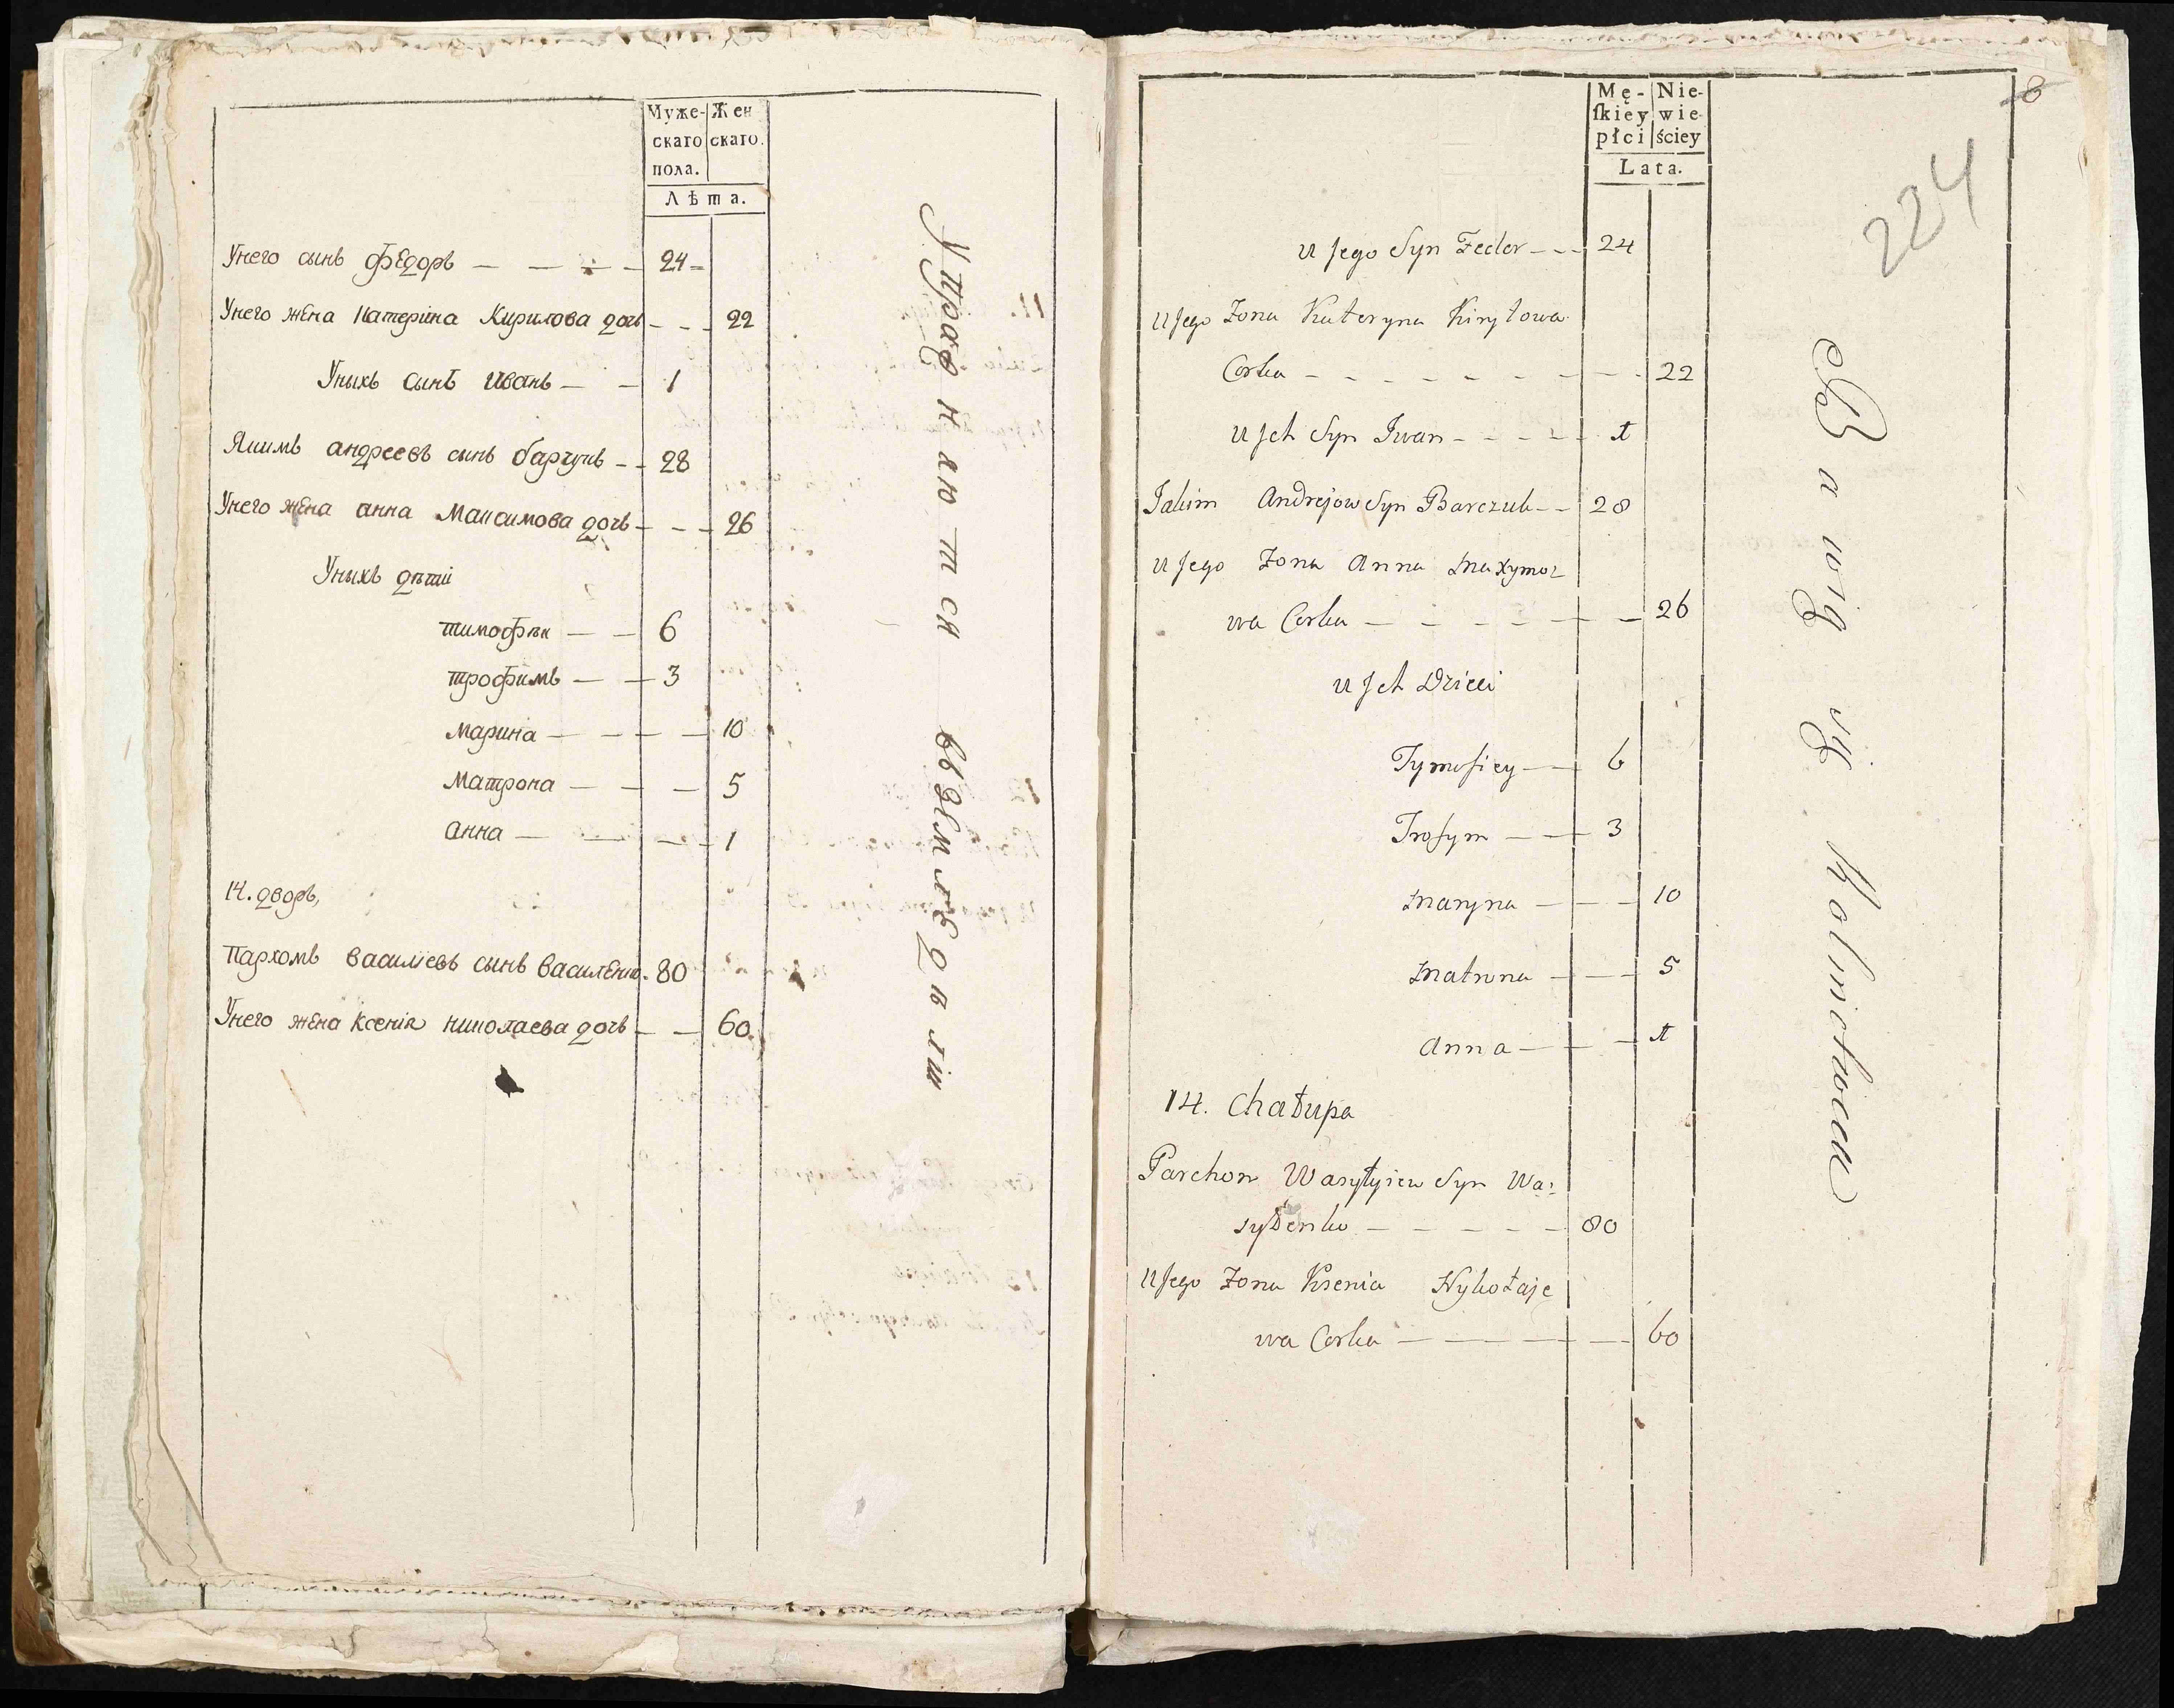 Муже-
скаго
пола.
Жен
скаго.
Лѣта.
Унего сынъ Федоръ — — — — 24
Унего жена Катерина Кирилова дочь — — — 22
Уныхъ сынъ Иванъ — — 1
Якимъ андреевъ сынъ барчукъ — — 28
Унего жена анна Максимова дочь — — — 26
Уныхъ дѣти
тимофѣи — — 6
трофимъ — — 3
марина — — — — 10
матрона — — — 5
анна — — — — 1
14. дворъ,
Пархомъ василиевъ сынъ василенко. 80
Унего жена Ксенія николаева дочь — — 60
Упражняются въ земледѣліи
8
224
Mę-
ſkiey
płci
Nie-
wie-
ściey
Lata.
u Jego Syn Fedor — — — 24
u Jego Żona Kateryna Kiryłowa
Corka — — — — — — — — — 22
u Jch Syn Iwan — — — — — 1
Jakim Andrejow Syn Barczuk — — 28
u Jego Żona Anna Maxymo=
wa Corka — — — — — — — 26
u Jch Dzieci
Tymofiey — — 6
Trofym — — — 3
Maryna — — — 10
Matrona — — — 5
Anna — — — 1
14. Chałupa
Parchom Wasyłyiew Syn Wa=
syłenko — — — — — 80
u Jego Żona Ksenia Nykołaje
wa Corka — — — — — 60
Bawią się Rolnictwem